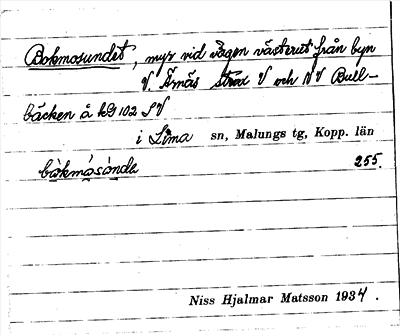 Bokmosundet, myr vid vägen västerut från byn
V. Ärnäs strax V och NV Bull-
bäcken å kbl 102 SV
i Lima sn, Malungs tg, Kopp. län
bòkmósúnde 255.
Niss Hjalmar Matsson 1934.